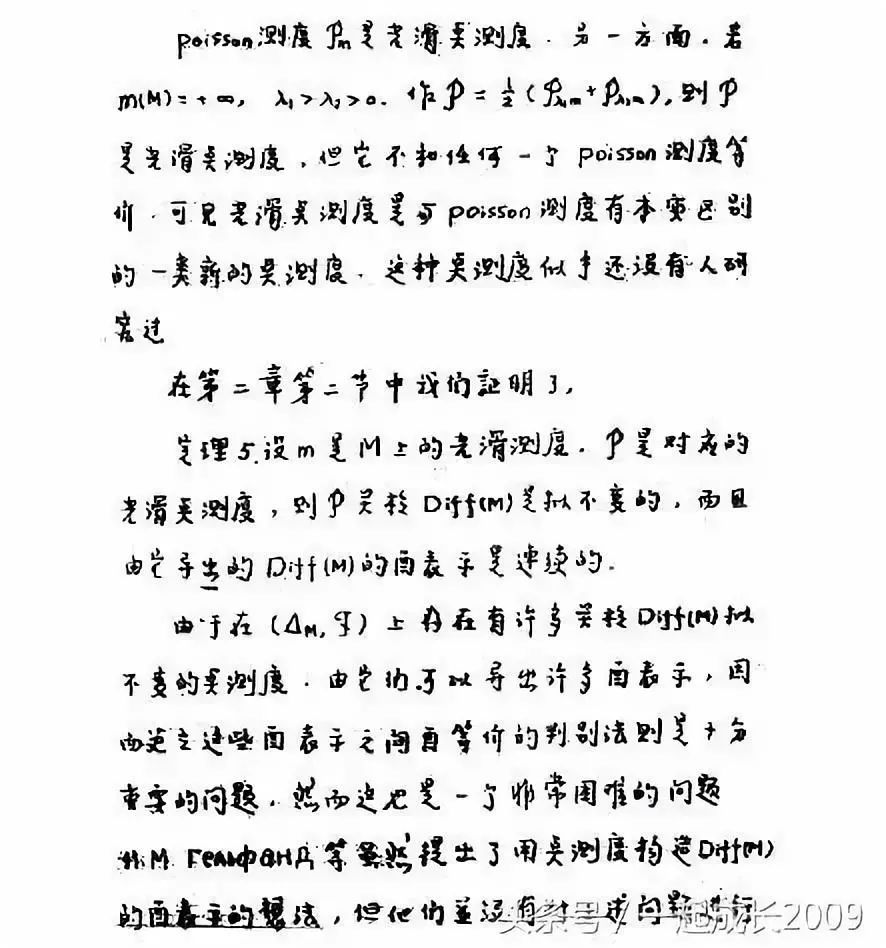 poisson测度 Pm 是光滑点测度. 另一方面. 若
m(M) = +∞, λ₁ > λ₂ > 0. 作 P = ½ (Pλ₁m + Pλ₂m), 则 P
是光滑点测度, 但它不和任何一个 poisson 测度等
价. 可见光滑点测度是与 poisson 测度有本质区别
的一类新的点测度. 这种点测度似乎还没有人研
究过
在第二章第二节中我们証明了,
定理5. 设 m 是 M 上的光滑测度. P 是对应的
光滑点测度, 则 P 关於 Diff(M) 是拟不变的, 而且
由它导出的 Diff(M) 的酉表示是连续的.
由于在 (ΔM, F) 上存在有许多关於 Diff(M) 拟
不变的点测度. 由它们可以导出许多酉表示, 因
而建立这些酉表示之间酉等价的判别法则是十分
重要的问题. 然而这也是一个非常困难的问题
И.М. Гельфанд 等虽然提出了用点测度构造 Diff(M)
的酉表示的想法, 但他们並没有对上述问题进行
头条号 / 一起成长2009